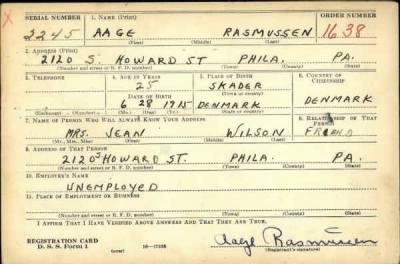 SERIAL NUMBER 1. NAME (Print) ORDER NUMBER
2245 AAGE RASMUSSEN 1638
(First) (Middle) (Last)
2. ADDRESS (Print)
2120 S. HOWARD ST PHILA. PA.
(Number and street or R. F. D. number) (Town) (County) (State)
3. TELEPHONE 4. AGE IN YEARS 5. PLACE OF BIRTH 6. COUNTRY OF CITIZENSHIP
25 SKADER
DATE OF BIRTH (Town or county)
6 28 1915 DENMARK DENMARK
(Exchange) (Number) (Mo.) (Day) (Yr.) (State or country)
7. NAME OF PERSON WHO WILL ALWAYS KNOW YOUR ADDRESS 8. RELATIONSHIP OF THAT PERSON
MRS. JEAN WILSON FRIEND
(Mr., Mrs., Miss) (First) (Middle) (Last)
9. ADDRESS OF THAT PERSON
2120 S HOWARD ST. PHILA. PA.
(Number and street or R. F. D. number) (Town) (County) (State)
10. EMPLOYER'S NAME
UNEMPLOYED
11. PLACE OF EMPLOYMENT OR BUSINESS
(Number and street or R. F. D. number) (Town) (County) (State)
I AFFIRM THAT I HAVE VERIFIED ABOVE ANSWERS AND THAT THEY ARE TRUE.
REGISTRATION CARD
D. S. S. Form 1 (over) 16—17105 Aage Rasmussen